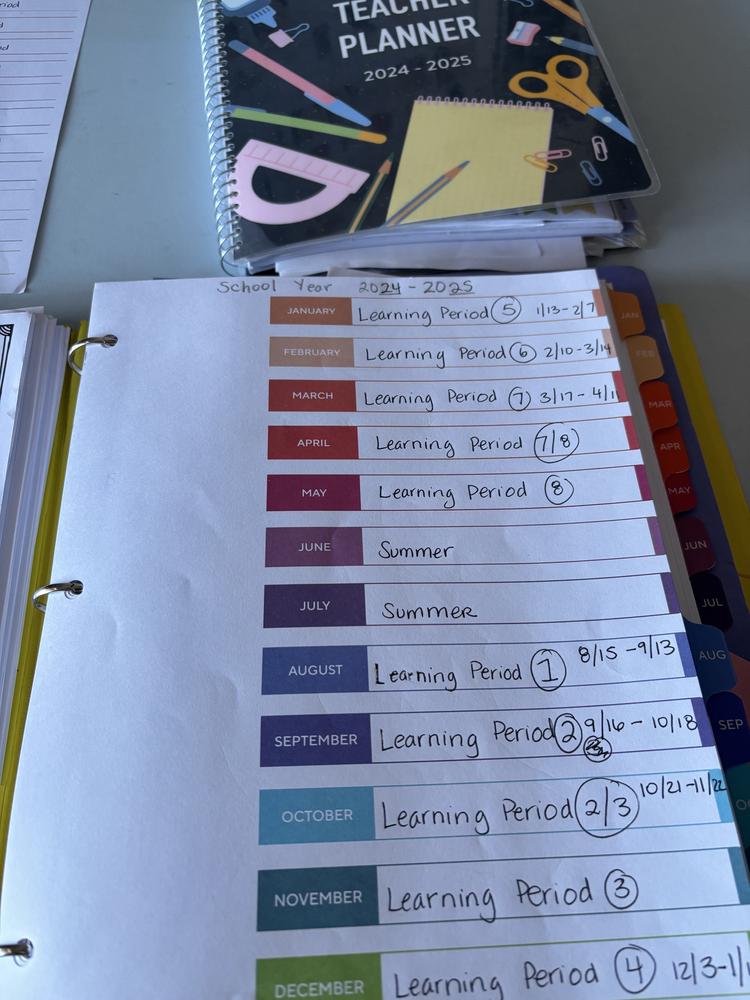 TEACHER
PLANNER
2024 - 2025
School Year 2024 - 2025
JANUARY Learning Period 5 1/13 - 2/7
FEBRUARY Learning Period 6 2/10 - 3/14
MARCH Learning Period 7 3/17 - 4/11
APRIL Learning Period 7/8
MAY Learning Period 8
JUNE Summer
JULY Summer
AUGUST Learning Period 1 8/15 - 9/13
SEPTEMBER Learning Period 2 9/16 - 10/18
OCTOBER Learning Period 2/3 10/21 - 11/22
NOVEMBER Learning Period 3
DECEMBER Learning Period 4 12/3 - 1/1
JAN
FEB
MAR
APR
MAY
JUN
JUL
AUG
SEP